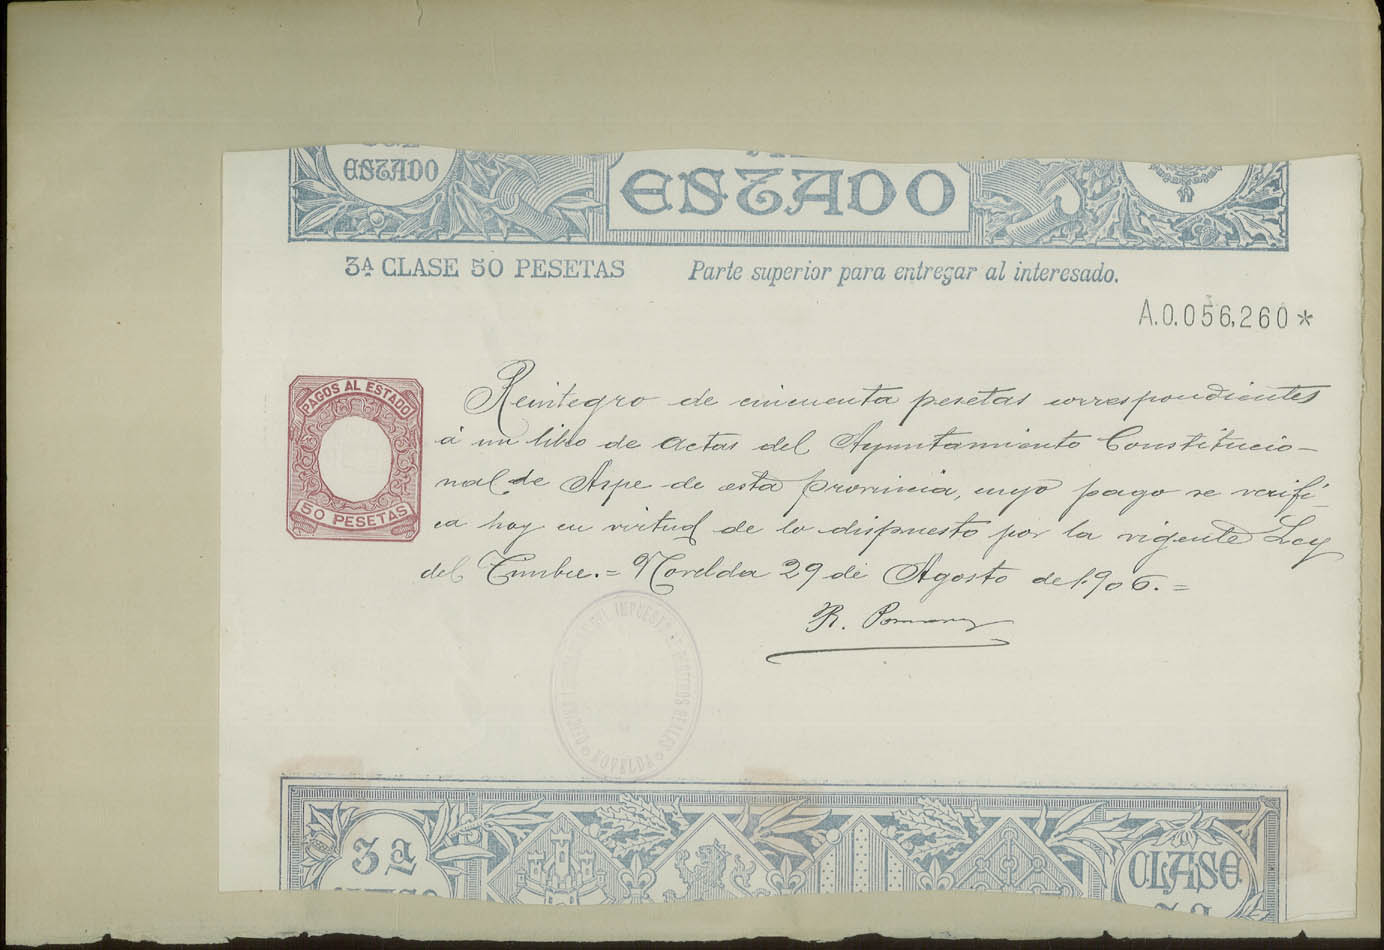 ESTADO
ESTADO
3ª CLASE 50 PESETAS
Parte superior para entregar al interesado.
A.0.056,260*
PAGOS AL ESTADO
50 PESETAS
Reintegro de cincuenta pesetas correspondientes
á un libro de actas del Ayuntamiento Constitucio-
nal de Aspe de esta provincia, cuyo pago se verifi-
ca hoy en virtud de lo dispuesto por la vigente Ley
del Timbre.= Novelda 29 de Agosto de 1.906.=
R.
IMPUESTO DE DERECHOS REALES
3ª
CLASE